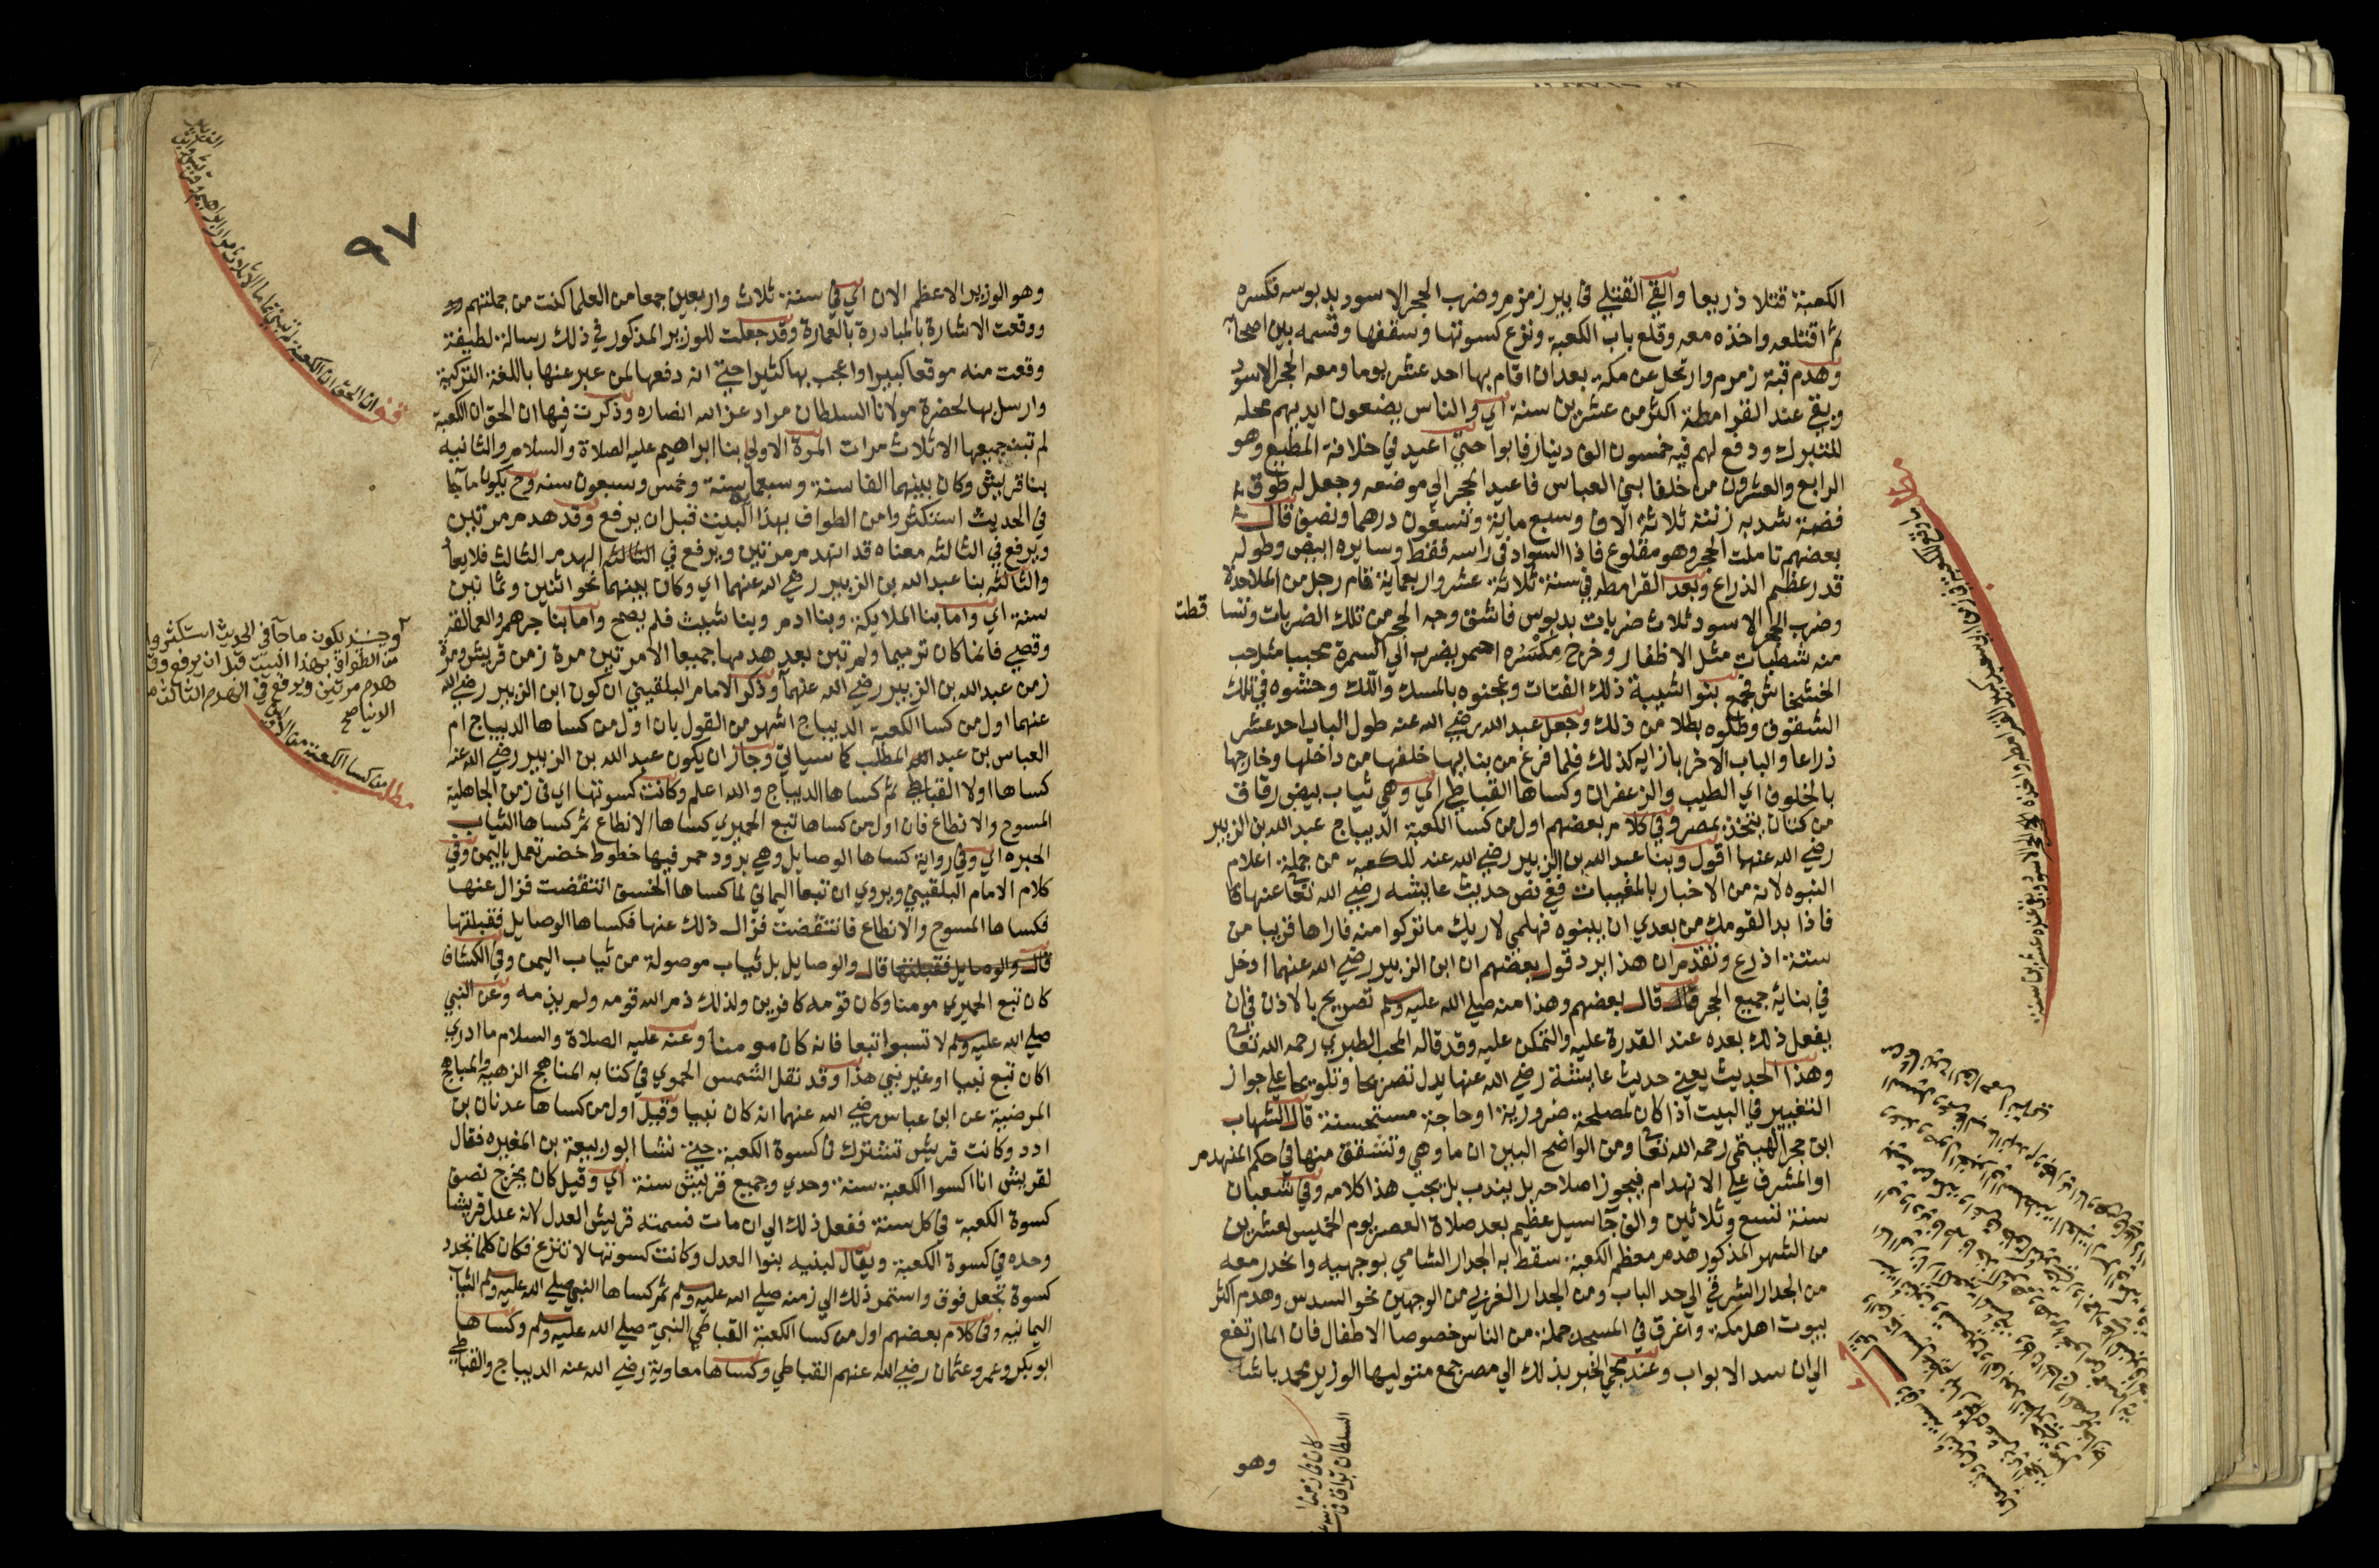 الكعبة قتلا ذريعا والقي القتلي في بير زمزم وضرب الحجر الاسود بدبوسه فكسره
ثم اقتلعه واخذه معه وقلع باب الكعبة ونزع كسوتها وسقفها وقسمه بين اصحابه
وهدم قبة زمزم وارتحل عن مكة بعد ان اقام بها احد عشر يوما ومعه الحجر الاسود
وبقي عند القرامطة اكثر من عشرين سنة اي والناس يضعون ايديهم محله
للتبرك ودفع لهم فيه خمسون الف دينار فابوا حتي اعيد في خلافة المطيع وهو
الرابع والعشرون من خلفا بني العباس فاعيد الحجر الي موضعه وجعل له طوق
فضة شد به زنته ثلاثة الاف وسبع ماية وتسعون درهما ونصف قال
بعضهم تاملت الحجر وهو مقلوع فاذا السواد في راسه فقط وسايره ابيض وطوله
قدر عظم الذراع وبعد القرامطه في سنة ثلاثة عشر واربعماية قام رجل من الملاحدة
وضرب الحجر الاسود ثلاث ضربات بدبوس فانشق وجه الحجر من تلك الضربات وتسا قطت
منه شظيات مثل الاظفار وخرج مكسره احمر يضرب الي السمرة محببا مثل حب
الخشخاش فجمع بنوا شيبة ذلك الفتات وعجنوه بالمسك واللك وحشوه في تلك
الشقوق وطلوه بطلا من ذلك وجعل عبد الله رضي الله عنه طول الباب احد عشر
ذراعا والباب الاخر بازايه كذلك فلما فرغ من بنايها خلقها من داخلها وخارجها
بالخلوق اي الطيب والزعفران وكساها القباطي اي وهي ثياب بيض رقاق
من كتان يتخذ بمصر وفي كلام بعضهم اول من كسا الكعبة الديباج عبد الله بن الزبير
رضي الله عنها اقول وبنا عبد الله بن الزبير رضي الله عنه للكعبة من جملة اعلام
النبوه لانه من الاخبار بالمغيبات ففي نص حديث عايشه رضي الله تعا عنها
فاذا بدا لقومك من بعدي ان يبنوه فهلمي لاريك ما تركوا منه فاراها قريبا من
ستة اذرع وتقدم ان هذا يرد قول بعضهم ان ابن الزبير رضي الله عنهما ادخل
في بنايه جميع الحجر قال بعضهم وهذا منه صلي الله عليه وسلم تصريح بالاذن في ان
يفعل ذلك بعده عند القدرة عليه والتمكن عليه وقد قاله المحب الطبري رحمه الله تعا
وهذا الحديث يعني حديث عايشة رضي الله عنها يدل تصريحا وتلويحا علي جواز
التغيير في البيت اذا كان لمصلحة ضرورية او حاجة مستحسنة قال الشهاب
ابن حجر الهيتمي رحمه الله تعا ومن الواضح البين ان ما وهي وتشقق منها في حكم المنهدم
او المشرف علي الانهدام فيجوز اصلاحه بل يندب بل يجب هذا كلامه وفي شعبان
سنة تسع وثلاثين والف جا سيل عظيم بعد صلاة العصر يوم الخميس لعشرين
من الشهر المذكور هدم معظم الكعبة سقط به الجدار الشامي بوجهيه وانحدر معه
من الجدار الشرقي الي حد الباب ومن الجدار الغربي من الوجهين نحو السدس وهدم اكثر
بيوت اهل مكة واغرق في المسجد جملة من الناس خصوصا الاطفال فان الما ارتفع
الي ان سد الابواب وعند مجي الخبر بذلك الي مصر جمع متوليها الوزير محمد باشا
وهو
٩٧
وهو الوزير الاعظم الان اي في سنة ثلاث واربعين جمعا من العلما كنت من جملتهم
ووقعت الاشارة بالمبادرة بالعمارة وقد جعلت للوزير المذكور في ذلك رسالة لطيفة
وقعت منه موقعا كبيرا واعجب بها كثيرا حتي انه دفعها لمن عبر عنها باللغة التركية
وارسل بها لحضرة مولانا السلطان مراد عز الله انصاره وذكرت فيها ان الحق ان الكعبة
لم تبن جميعها الا ثلاث مرات المرة الاولي بنا ابراهيم عليه الصلاة والسلام والثانيه
بنا قريش وكان بينهما الفا سنة وسبعماية سنة وخمس وسبعون سنه وح يكون ما جا
في الحديث استكثروا من الطواف بهذا البيت قبل ان يرفع وقد هدم مرتين
ويرفع في الثالثه معناه قد انهدم مرتين ويرفع في الثالثه الهدم الثالث فلا يعا
والثالثه بنا عبد الله بن الزبير رضي الله عنهما اي وكان بينهما نحو اثنين وثمانين
سنة اي واما بنا الملايكة وبنا ادم وبنا شيث فلم يصح واما بنا جرهم والعمالقه
وقصي فانما كان ترميما ولم تبن بعد هدمها جميعا الا مرتين مرة زمن قريش ومرة
زمن عبد الله بن الزبير رضي الله عنهما وذكر الامام البلقيني ان كون ابن الزبير رضي الله
عنهما اول من كسا الكعبة الديباج اشهر من القول بان اول من كساها الديباج ام
العباس بن عبد المطلب كما سياتي وجاز ان يكون عبد الله بن الزبير رضي الله عنه
كساها اولا القباطي ثم كساها الديباج والله اعلم وكانت كسوتها اي في زمن الجاهلية
المسوح والانطاع فان اول من كساها تبع الحميري كساها الانطاع ثم كساها الثياب
الحبره اي وفي رواية كساها الوصايل وهي برود حمر فيها خطوط خضر تعمل باليمن وفي
كلام الامام البلقيني ويروي ان تبعا اليماني لما كساها الخسف انتقضت فزال عنها
فكساها المسوح والانطاع فانتقضت فزال ذلك عنها فكساها الوصايل فقبلتها
قال والوصايل فقبلتها قال والوصايل بل ثياب موصولة من ثياب اليمن وفي الكشاف
كان تبع الحميري مومنا وكان قومه كافرين ولذلك ذم الله قومه ولم يذمه وعن النبي
صلي الله عليه وسلم لا تسبوا تبعا فانه كان مومنا وعنه عليه الصلاة والسلام ما ادري
اكان تبع نبيا او غير نبي هذا وقد نقل الشمس الحموي في كتابه المناهج الزهيه والمباهج
المرضية عن ابن عباس رضي الله عنهما انه كان نبيا وقيل اول من كساها عدنان بن
ادد وكانت قريش تشترك في كسوة الكعبة حتي نشا ابو ربيعة بن المغيره فقال
لقريش انا اكسوا الكعبة سنة وحدي وجميع قريش سنة اي وقيل كان يخرج نصف
كسوة الكعبة في كل سنة ففعل ذلك الي ان مات فسمته قريش العدل لانه عدل قريشا
وحده في كسوة الكعبة ويقال لبنيه بنوا العدل وكانت كسوتها لا تنزع فكان كلما تجدد
كسوة تجعل فوق واستمر ذلك الي زمنه صلي الله عليه وسلم ثم كساها النبي صلي الله عليه وسلم الثياب
اليمانيه وفي كلام بعضهم اول من كسا الكعبة القباطي النبي صلي الله عليه وسلم وكساها
ابو بكر وعمر وعثمان رضي الله عنهم القباطي وكساها معاوية رضي الله عنه الديباج والقباطي
وحينيذ يكون ما جا في الحديث استكثروا
من الطواف بهذا البيت قبل ان يرفع وقد
هدم مرتين ويرفع في الهدم الثالث
الدنيا صح
مطلب من كسا الكعبة